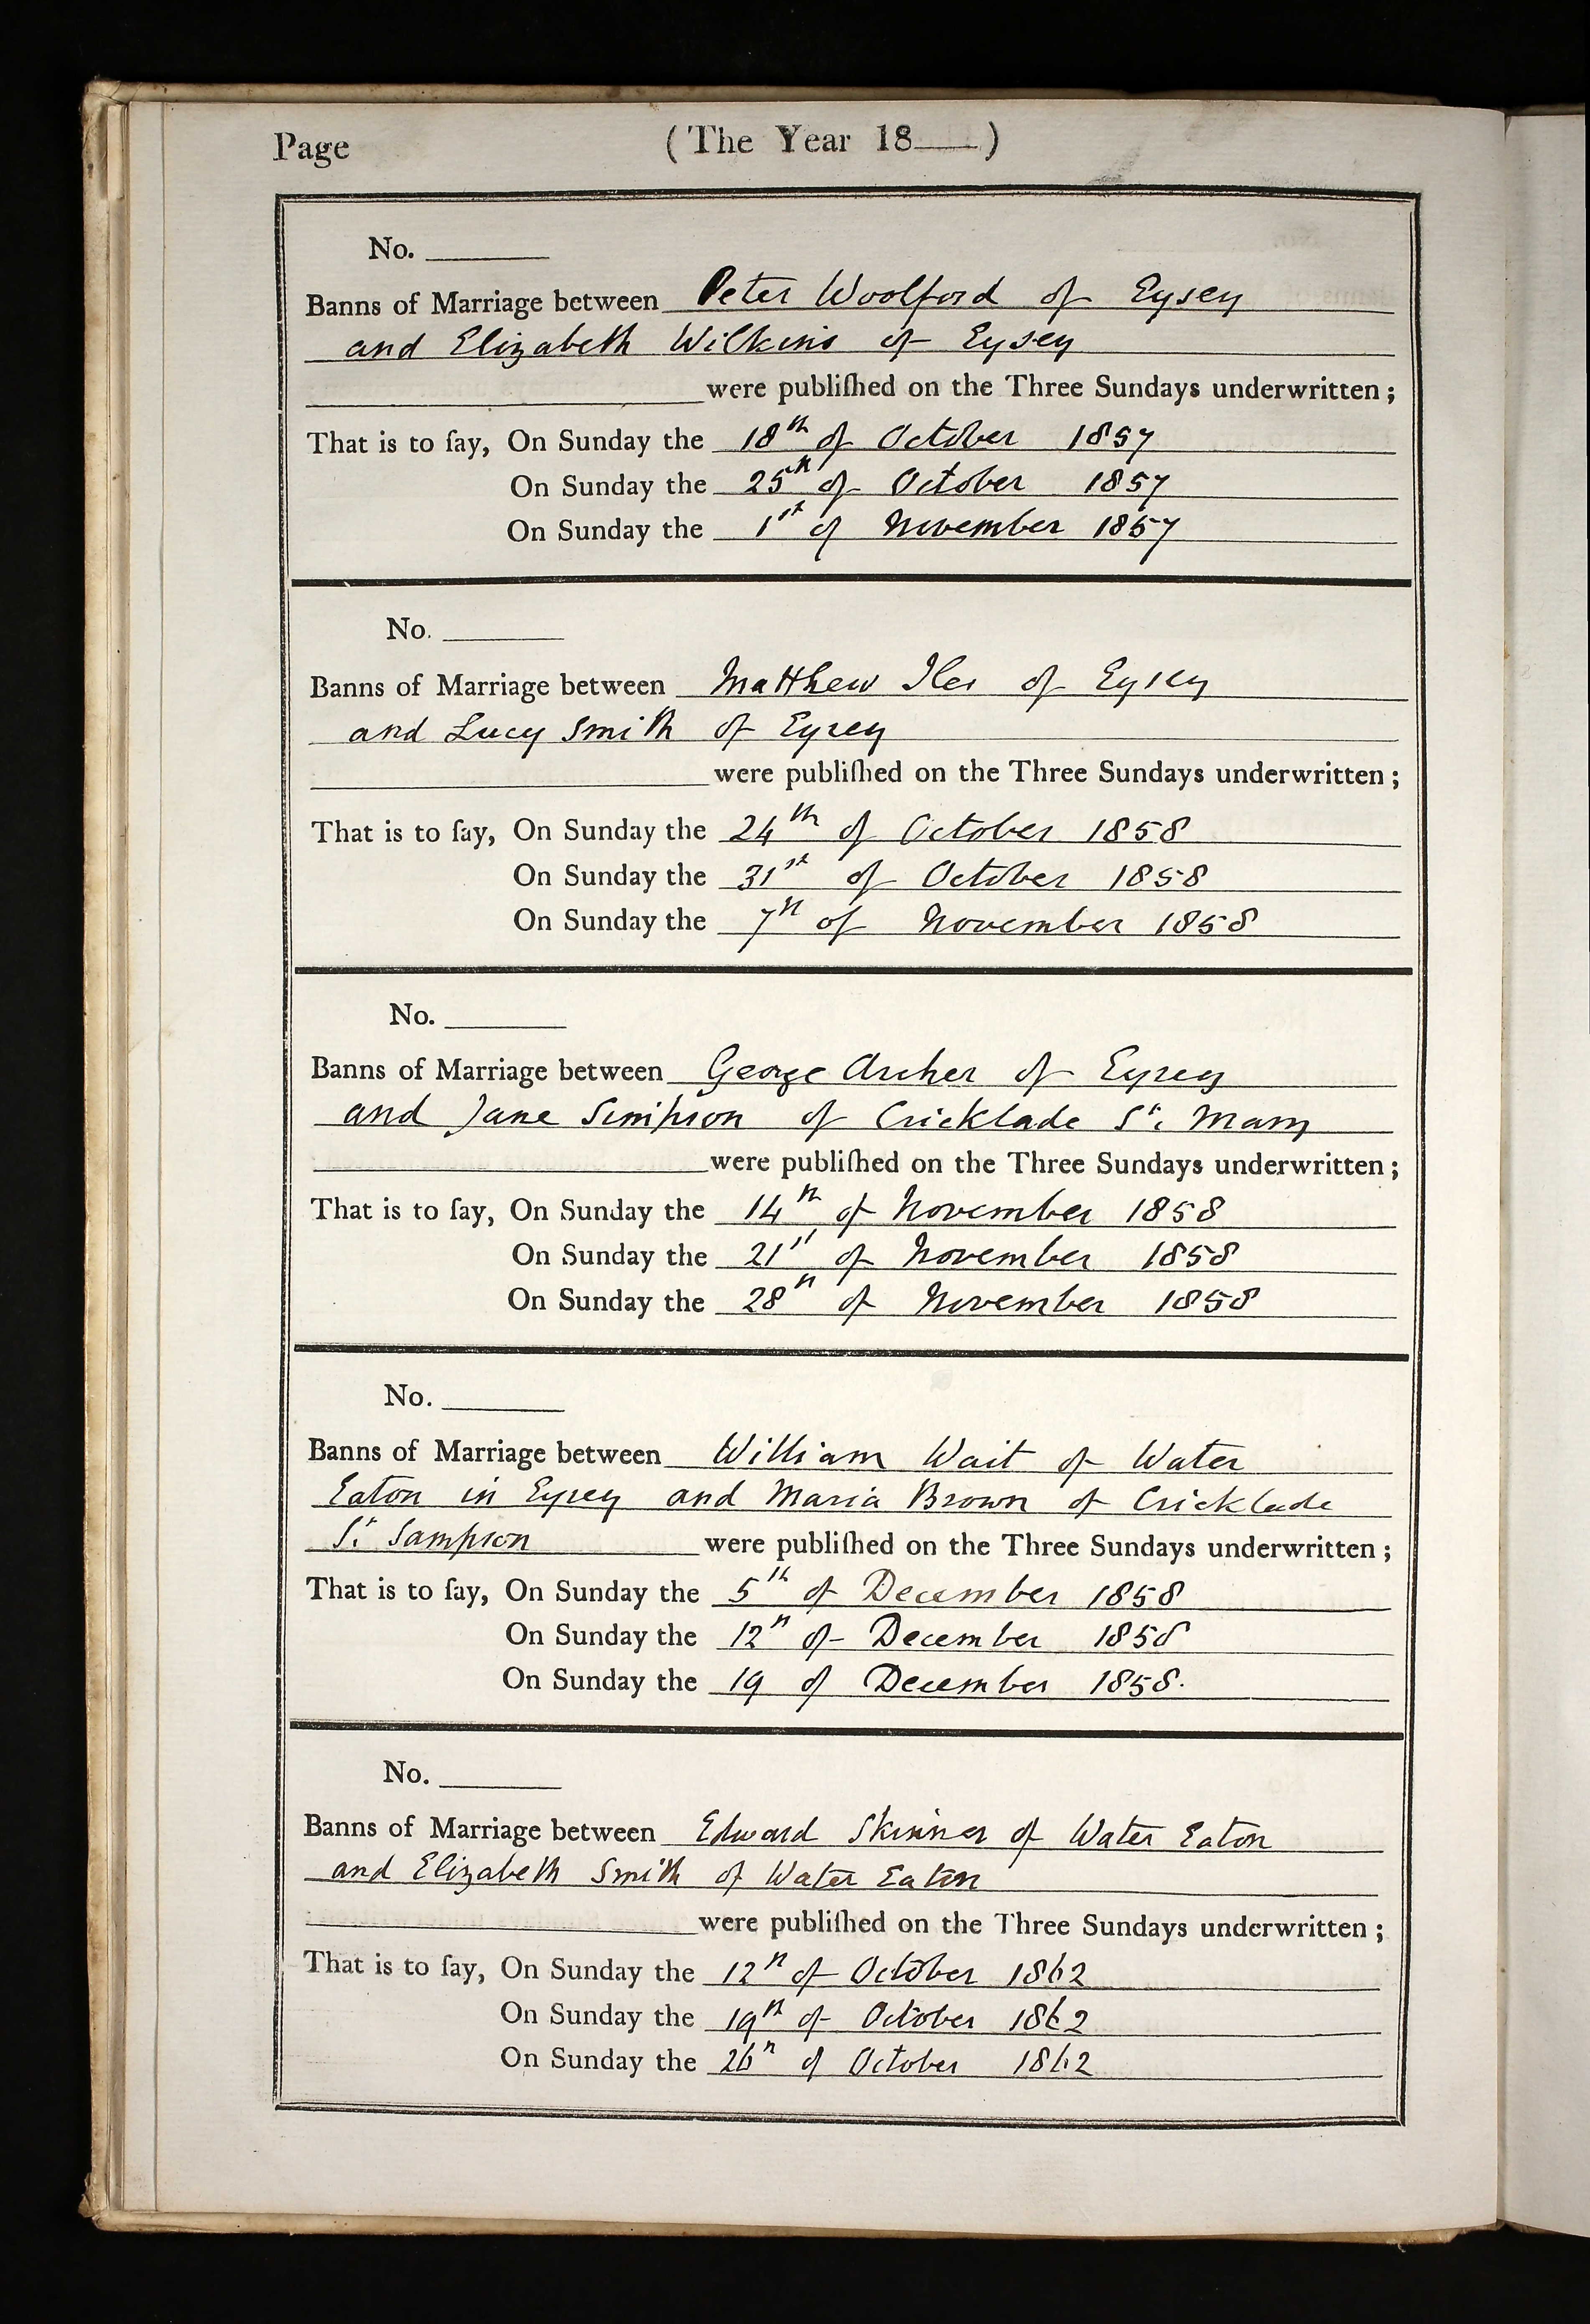 Page (The Year 18___)
No. ______
Banns of Marriage between Peter Woolford of Eysey
and Elizabeth Wilkins of Eysey
were publiſhed on the Three Sundays underwritten;
That is to ſay, On Sunday the 18th of October 1857
On Sunday the 25th of October 1857
On Sunday the 1st of November 1857
No. ______
Banns of Marriage between Matthew Iles of Eysey
and Lucy Smith of Eysey
were publiſhed on the Three Sundays underwritten;
That is to ſay, On Sunday the 24th of October 1858
On Sunday the 31st of October 1858
On Sunday the 7th of November 1858
No. ______
Banns of Marriage between George Archer of Eysey
and Jane Simpson of Cricklade St. Mary
were publiſhed on the Three Sundays underwritten;
That is to ſay, On Sunday the 14th of November 1858
On Sunday the 21st of November 1858
On Sunday the 28th of November 1858
No. ______
Banns of Marriage between William Wait of Water
Eaton in Eysey and Maria Brown of Cricklade
St. Sampson were publiſhed on the Three Sundays underwritten;
That is to ſay, On Sunday the 5th of December 1858
On Sunday the 12th of December 1858
On Sunday the 19 of December 1858.
No. ______
Banns of Marriage between Edward Skinner of Water Eaton
and Elizabeth Smith of Water Eaton
were publiſhed on the Three Sundays underwritten;
That is to ſay, On Sunday the 12th of October 1862
On Sunday the 19th of October 1862
On Sunday the 26th of October 1862